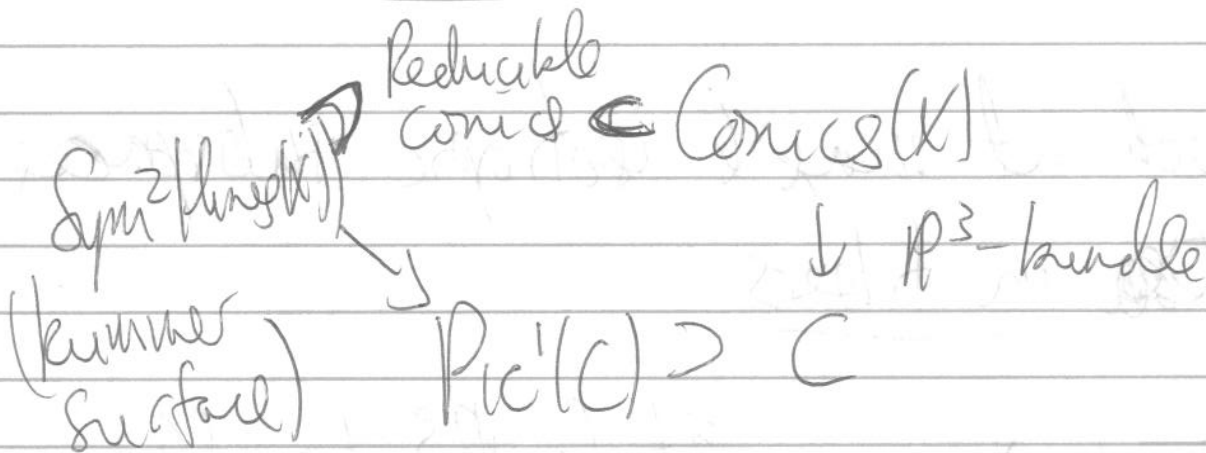 Reducible
conics ⊂ Conics(X)
Sym²(lines(X))
↓ P³-bundle
(kummer
surface)
Pic¹(C) ⊃ C